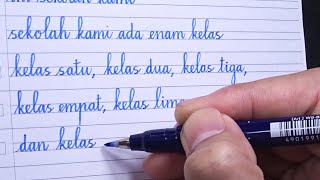 sekolah kami
sekolah kami ada enam kelas
kelas satu, kelas dua, kelas tiga,
kelas empat, kelas lima
dan kelas
4901991